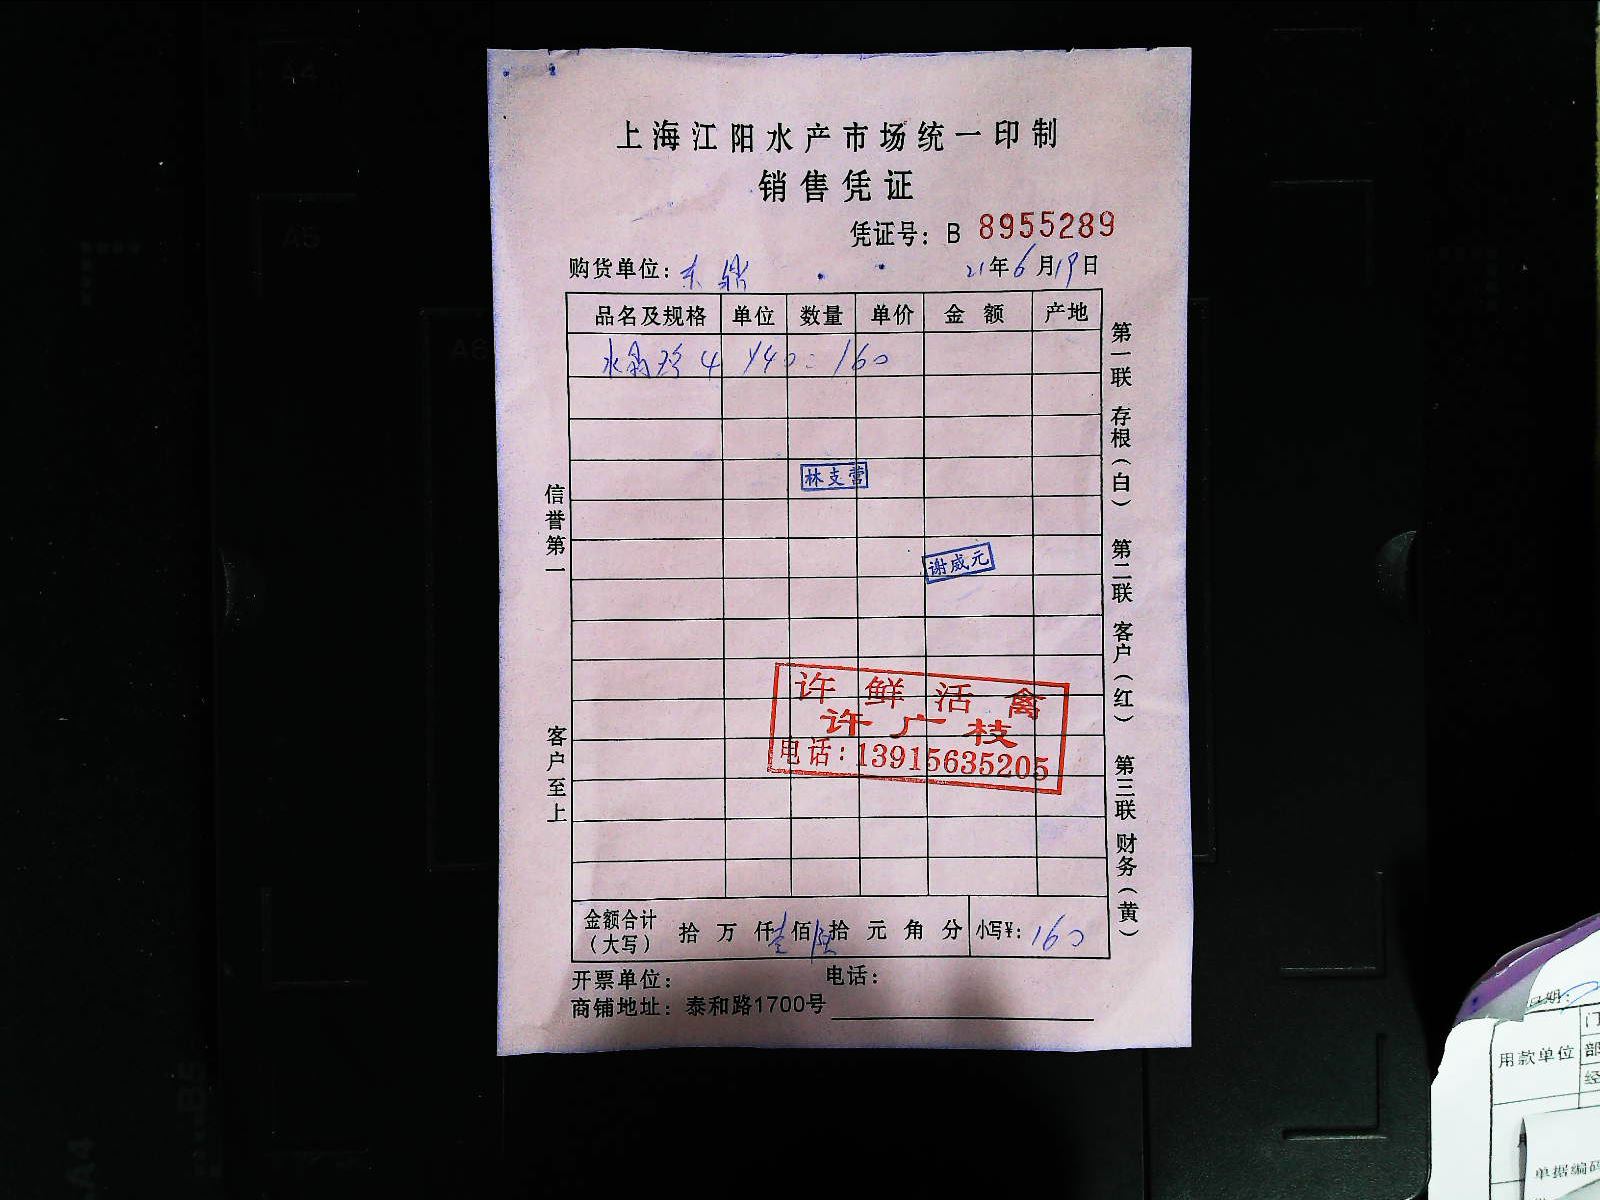 上海江阳水产市场统一印制
销售凭证
凭证号：B 8955289
购货单位：东鼎 21年6月19日
品名及规格 单位 数量 单价 金额 产地
水 4 ×40 = 160
林支营
谢威元
许鲜活禽
许广枝
电话：13915635205
金额合计（大写） 拾 万 仟 壹 佰 陆 拾 元 角 分 小写¥：160
开票单位： 电话：
商铺地址：泰和路1700号
信誉第一 客户至上
第一联 存根（白） 第二联 客户（红） 第三联 财务（黄）
日期：
用款单位
门
部
经
单据编码
A4
A5
A6
B5
A4